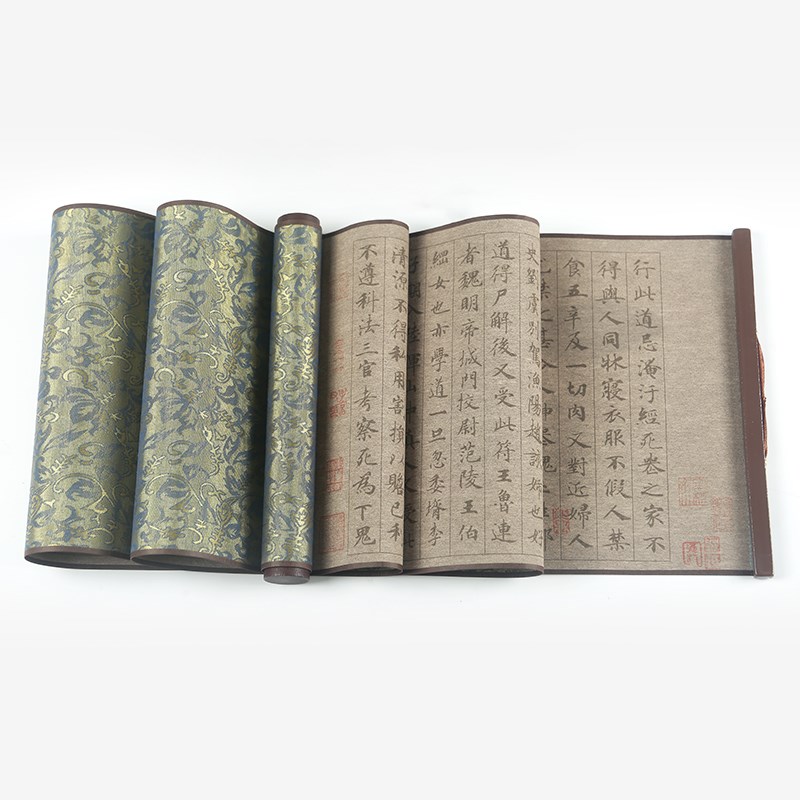 行此道忌淹汙經死喪之家不
得與人同牀寢衣服不假人禁
食五辛及一切肉又對近婦人
劉虞別駕漁陽趙該姊也好
道得尸解後又受此符王魯連
者魏明帝城門校尉范陵王伯
綱女也亦學道一旦忽委壻李
清源不得私用害損以贍已利
不遵科法三官考察死為下鬼